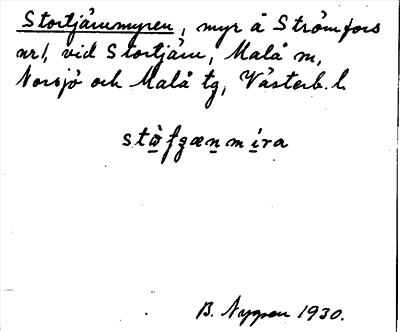 Stortjärnmyren, myr å Strömfors
nr 1, vid Stortjärn, Malå sn,
Norsjö och Malå tg, Västerb. l.
B. Nygren 1930.